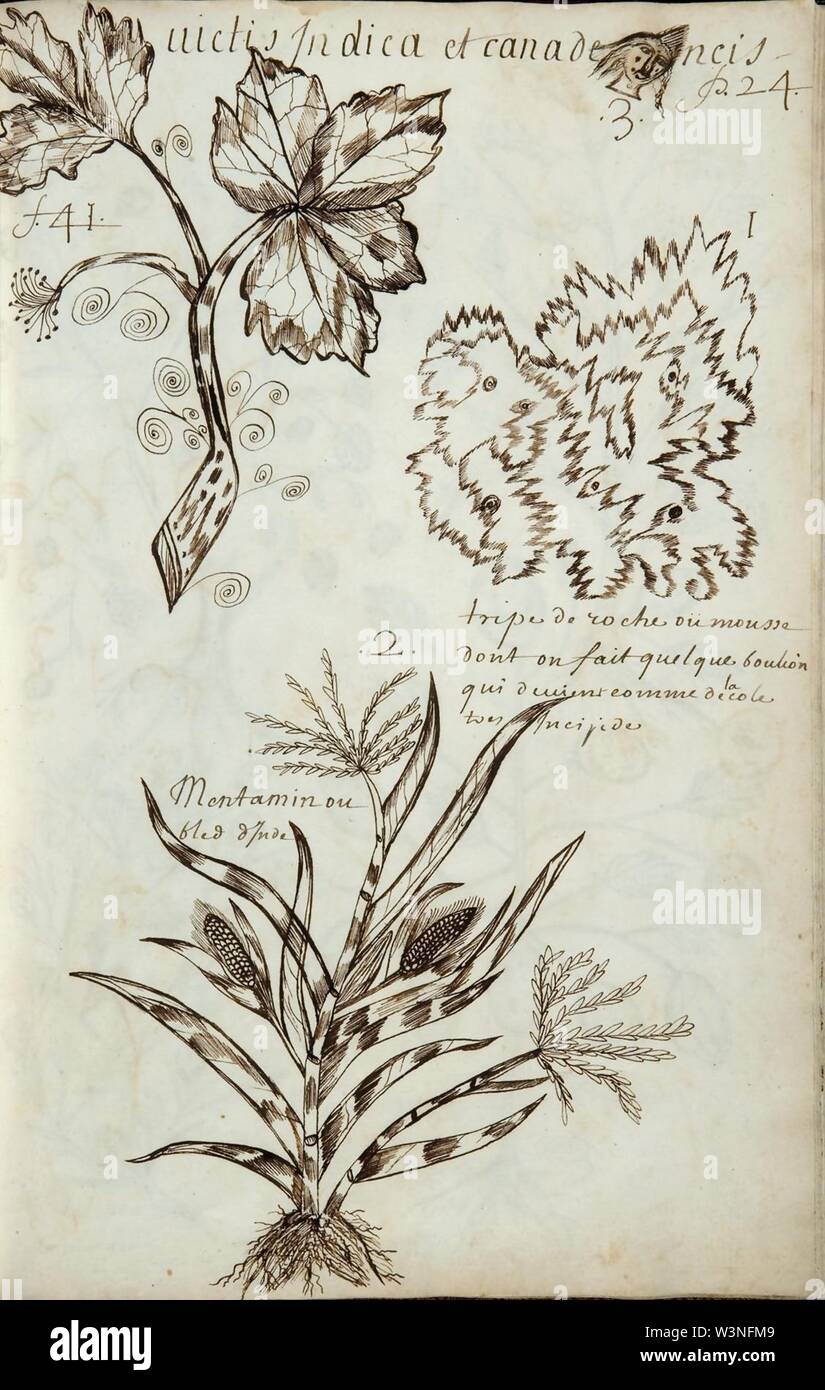 uictis Indica et canade ncis
3.
p. 24.
f. 41.
1
tripe de roche oü mousse
dont on fait quelque boulion
qui deuient comme de la cole
tres Incipide
.2.
Mentamin ou
bled d'Inde
alamy
alamy
Image ID: W3NFM9
www.alamy.com